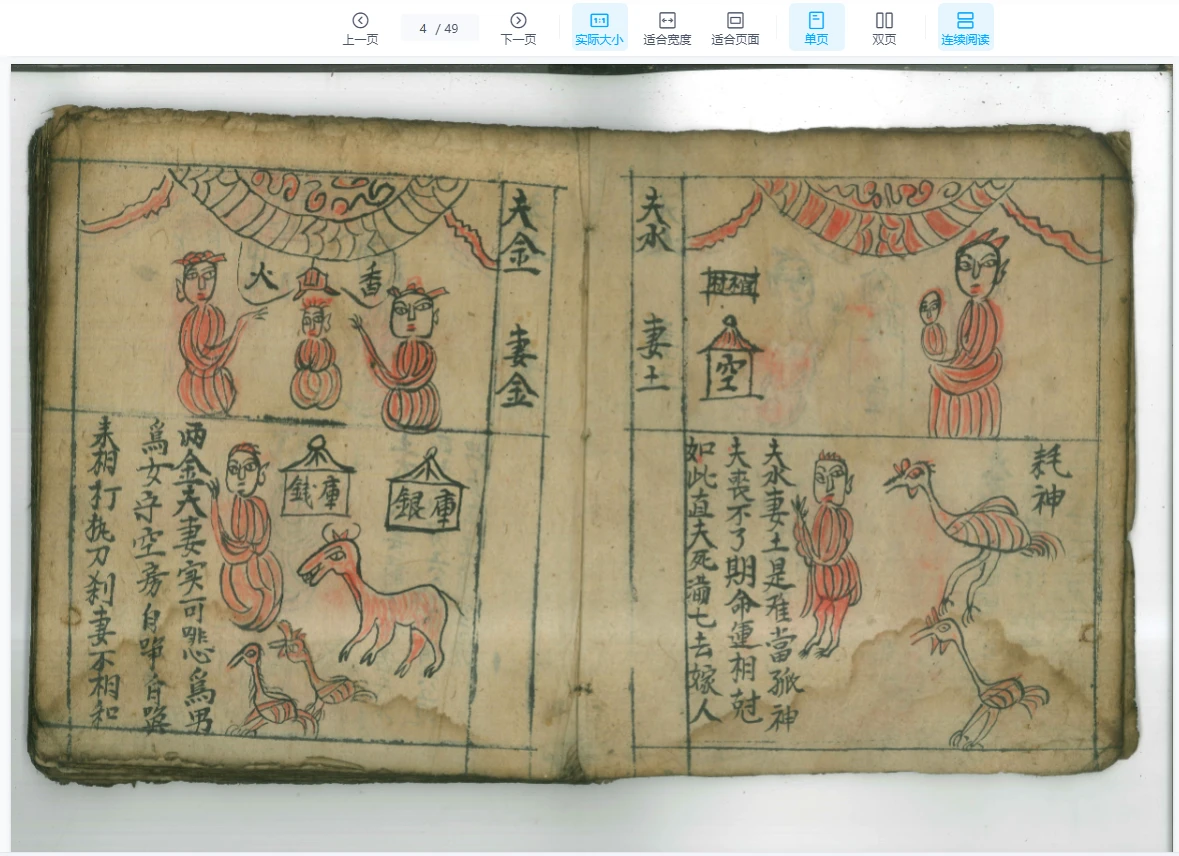 上一页
4 / 49
下一页
实际大小
适合宽度
适合页面
单页
双页
连续阅读
耗神
夫水妻土是难當孤神
夫喪不了期命運相尅
如此直夫死满七去嫁人
夫水
妻土
空
夫金
妻金
香
火
銀庫
錢庫
兩金夫妻实可悲爲男
爲女守空房自
来相打执刀刹妻不相和